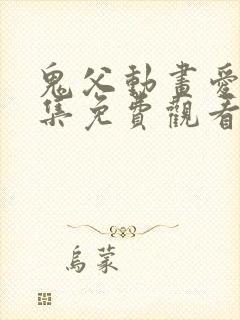 鬼父動畫愛
集免費觀看
烏蒙